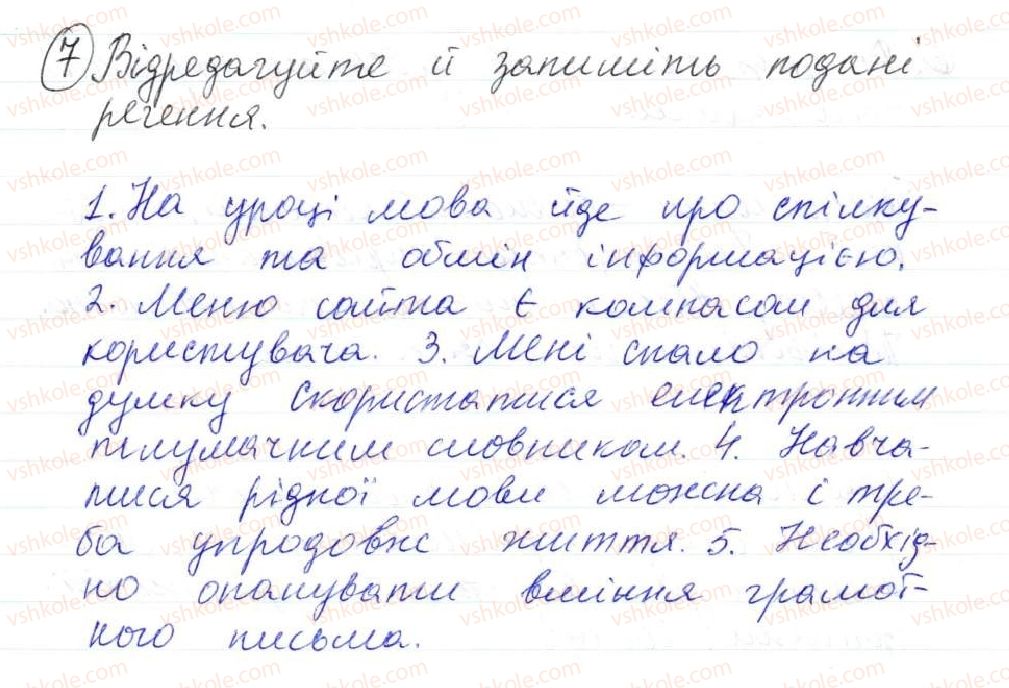 7 Відредагуйте й запишіть подані
речення.
1. На уроці мова йде про спілку-
вання та обмін інформацією.
2. Меню сайта є компасом для
користувача. 3. Мені спало на
думку скористатися електронним
тлумачним словником. 4. Навча-
тися рідної мови можна і тре-
ба упродовж життя. 5. Необхід-
но опанувати вміння грамот-
ного письма.